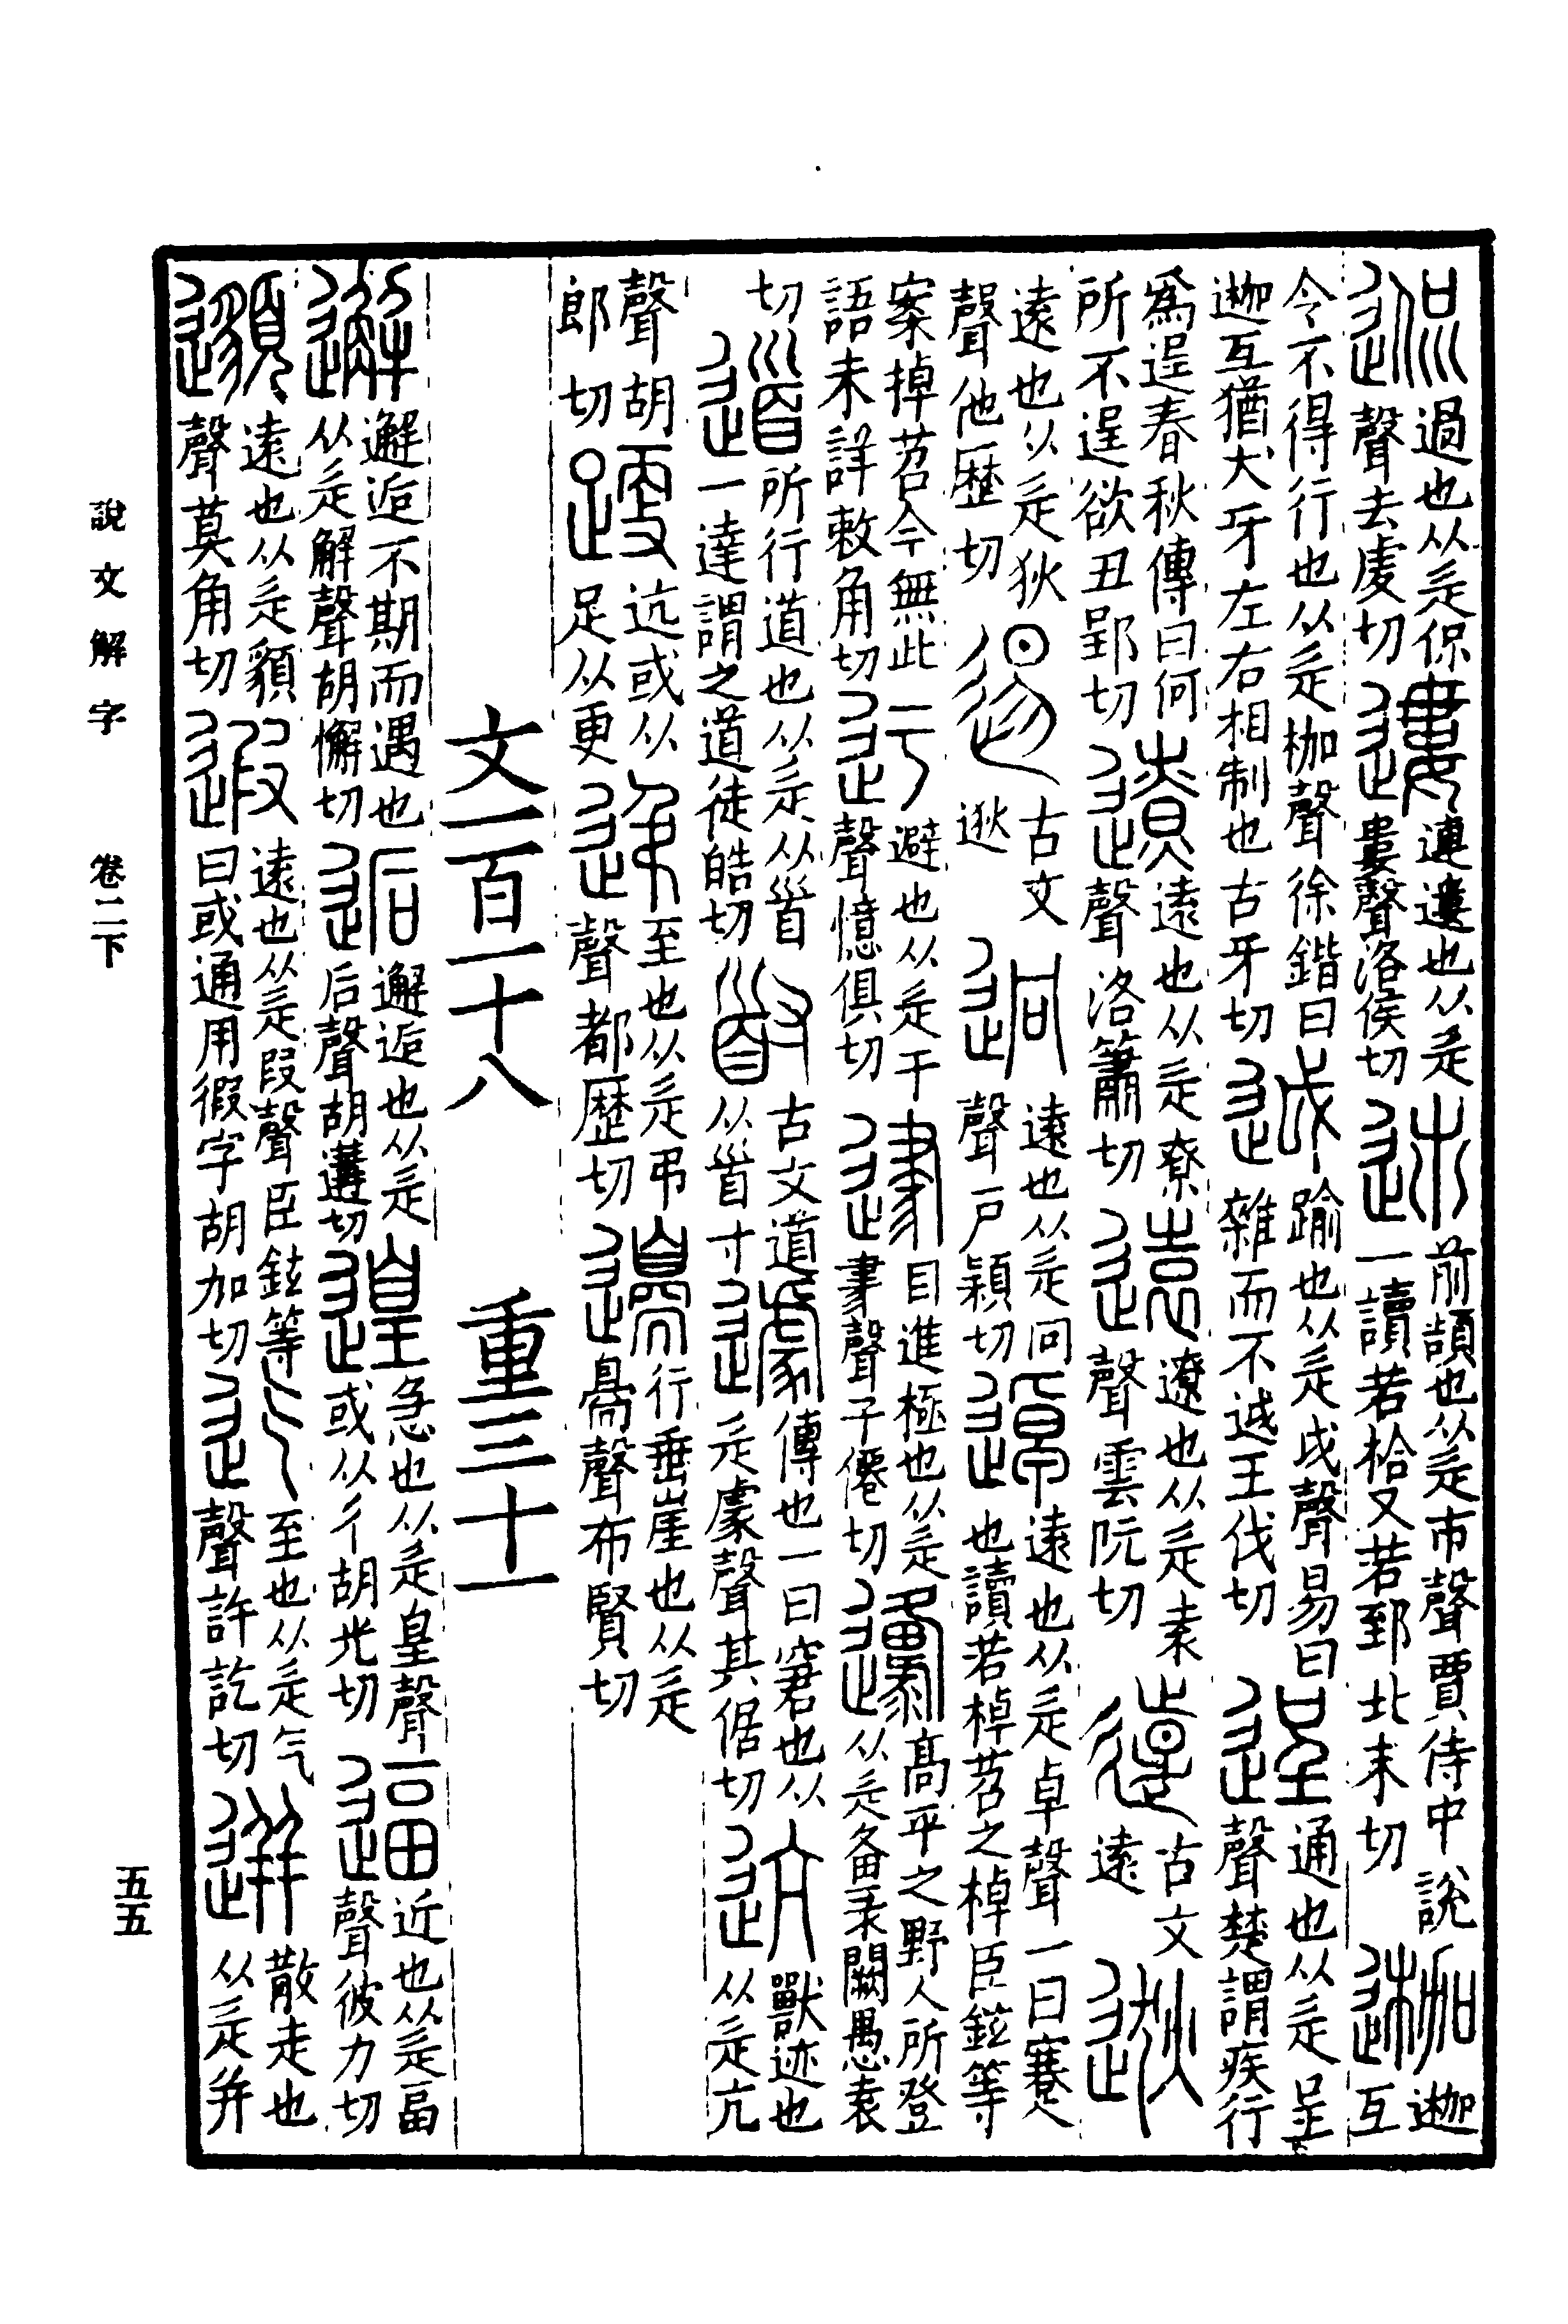 𨓵過也从辵侃聲去虔切 遱連遱也从辵婁聲洛侯切 𨒪前頡也从辵巿聲賈侍中說一讀若拾又若郅北末切 迦迦互
令不得行也从辵枷聲徐鍇曰迦互猶犬牙左右相制也古牙切 𨒋踰也从辵戉聲易曰雜而不𨒋王伐切 逞通也从辵呈聲楚謂疾行
爲逞春秋傳曰何所不逞欲丑郢切 遼遠也从辵尞聲洛簫切 遠遼也从辵袁聲雲阮切 𢕱古文遠 逖
遠也从辵狄聲他歷切 逷古文逖 迥遠也从辵冋聲戶穎切 逴遠也从辵卓聲一曰蹇也讀若棹苕之棹臣鉉等
案掉苕今無此語未詳敕角切 迂避也从辵于聲憶俱切 𨗔目進極也从辵聲子僊切 邍高平之野人所登从辵备彔闕愚袁
切 道所行道也从辵从𩠐一達謂之道徒皓切 𡬹古文道从𩠐寸 遽傳也一曰窘也从辵豦聲其倨切 迒獸迹也从辵亢
聲胡郎切 𨁈迒或从足从更 𨑩至也从辵弔聲都歷切 邊行垂崖也从辵臱聲布賢切
文一百一十八 重三十一
邂邂逅不期而遇也从辵解聲胡懈切 逅邂逅也从辵后聲胡遘切 遑急也从辵皇聲或从彳胡光切 逼近也从辵畐聲彼力切
邈遠也从辵貌聲莫角切 遐遠也从辵叚聲臣鉉等曰或通用徦字胡加切 迄至也从辵气聲許訖切 迸散走也从辵并
說文解字 卷二下
五五